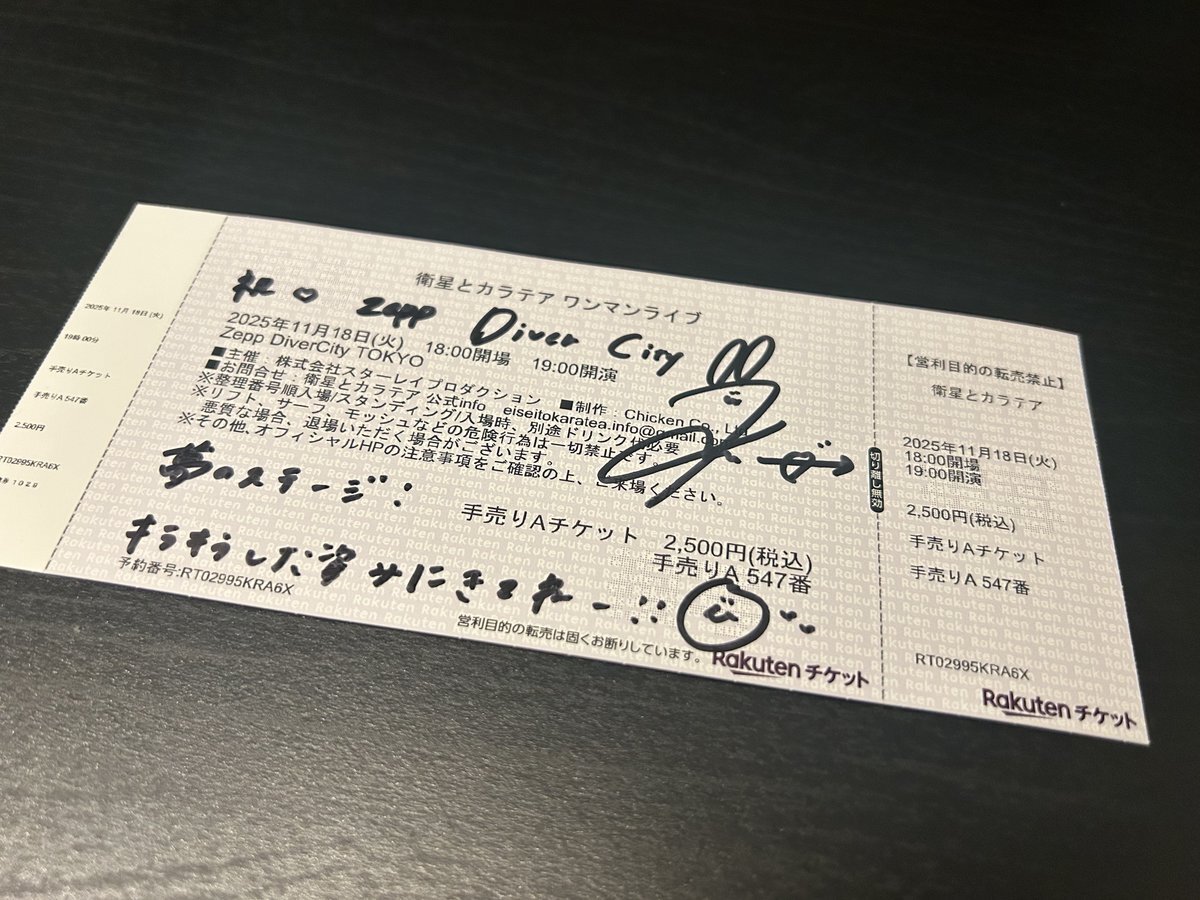 2025年 11月 18日 (火)
19時 00分
手売りAチケット
手売りA 547番
2,500円
RT02995KRA6X
衛星とカラテア ワンマンライブ
祝♡ Zepp Diver City
2025年11月18日(火) 18:00開場 19:00開演
Zepp DiverCity TOKYO
■主催：株式会社スターレイプロダクション ■制作：Chicken Co., Ltd
■お問合せ：衛星とカラテア 公式info eiseitokaratea.info@gmail.com
※整理番号順入場/スタンディング/入場時、別途ドリンク代必要
※リフト、サーフ、モッシュなどの危険行為は一切禁止です。
悪質な場合、退場いただく場合がございます。
※その他、オフィシャルHPの注意事項をご確認の上、ご来場ください。
夢のステージ!
手売りAチケット 2,500円(税込)
手売りA 547番
キラキラした姿 みにきてねー!!
予約番号:RT02995KRA6X
営利目的の転売は固くお断りしています。
Rakuten チケット
切り離し無効
【営利目的の転売禁止】
衛星とカラテア
2025年11月18日(火)
18:00開場
19:00開演
2,500円(税込)
手売りAチケット
手売りA 547番
RT02995KRA6X
Rakuten チケット